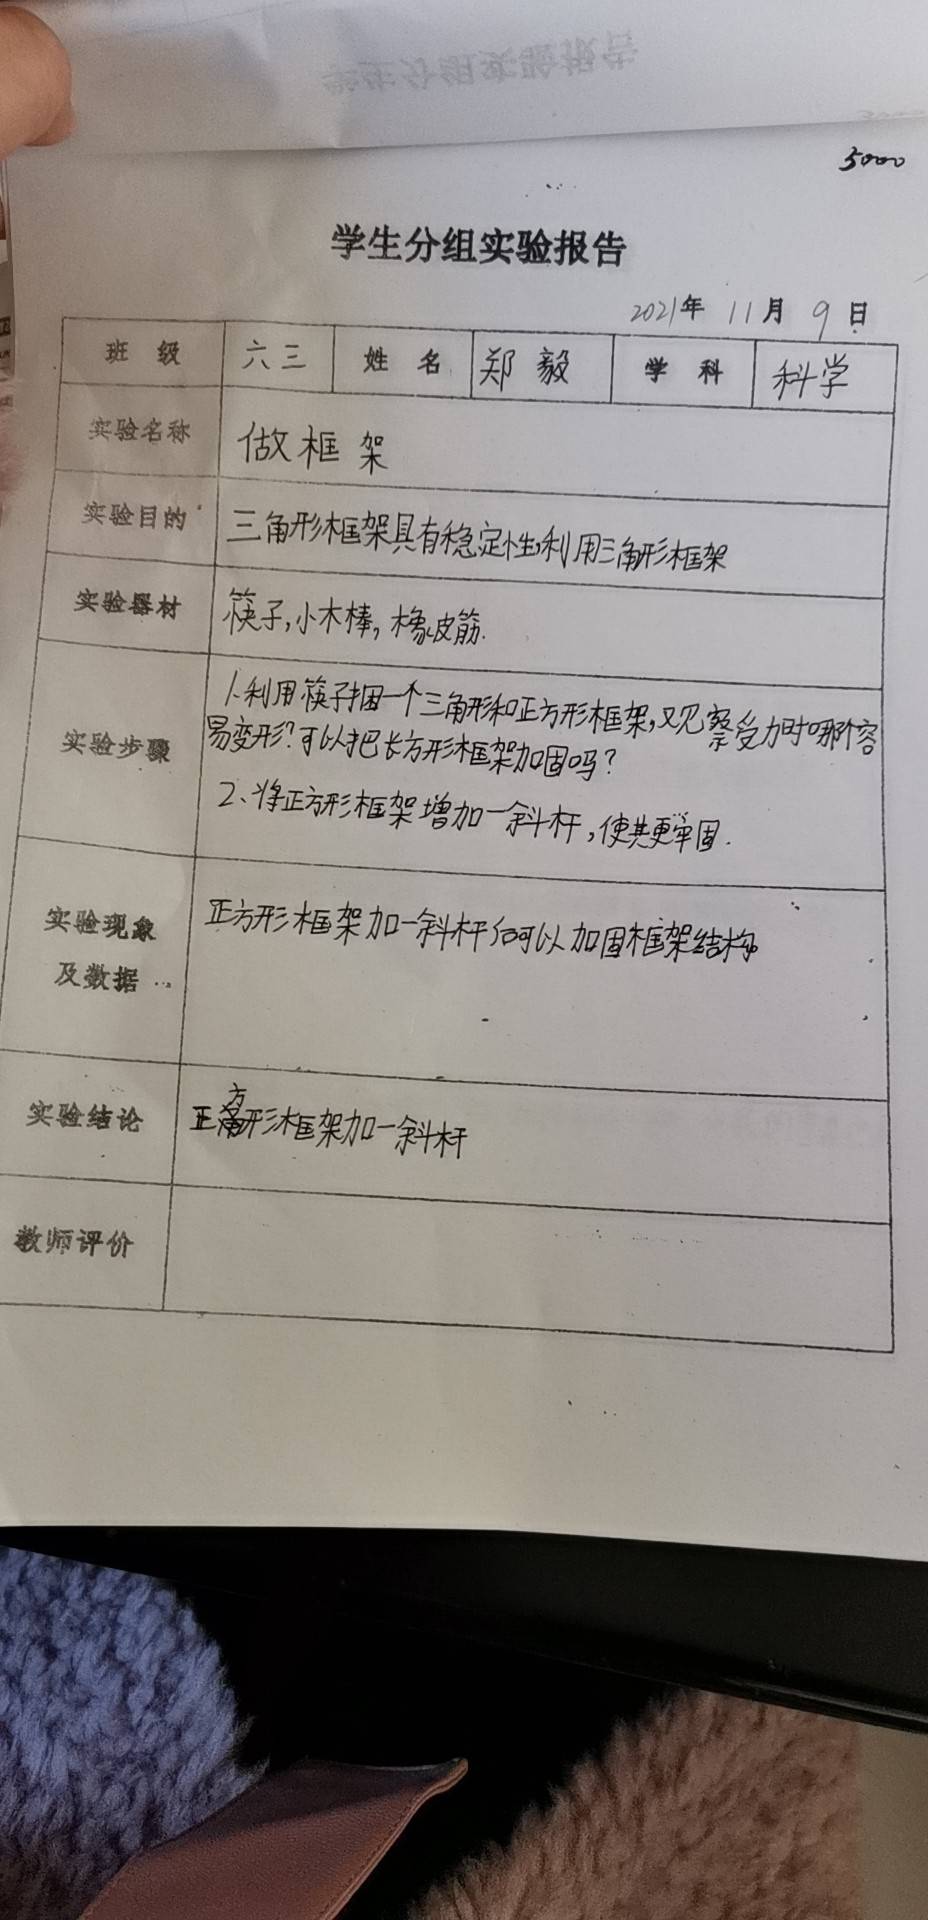 5000
学生分组实验报告
2021年 11月 9日
班级 六三 姓名 郑毅 学科 科学
实验名称 做框架
实验目的 三角形框架具有稳定性,利用三角形框架
实验器材 筷子,小木棒,橡皮筋.
实验步骤
1.利用筷子捆一个三角形和正方形框架,观察受力时哪个容
易变形?可以把长方形框架加固吗?
2、将正方形框架增加一斜杆,使其更牢固.
实验现象
及数据
正方形框架加一斜杆后可以加固框架结构
实验结论 正方形框架加一斜杆
教师评价